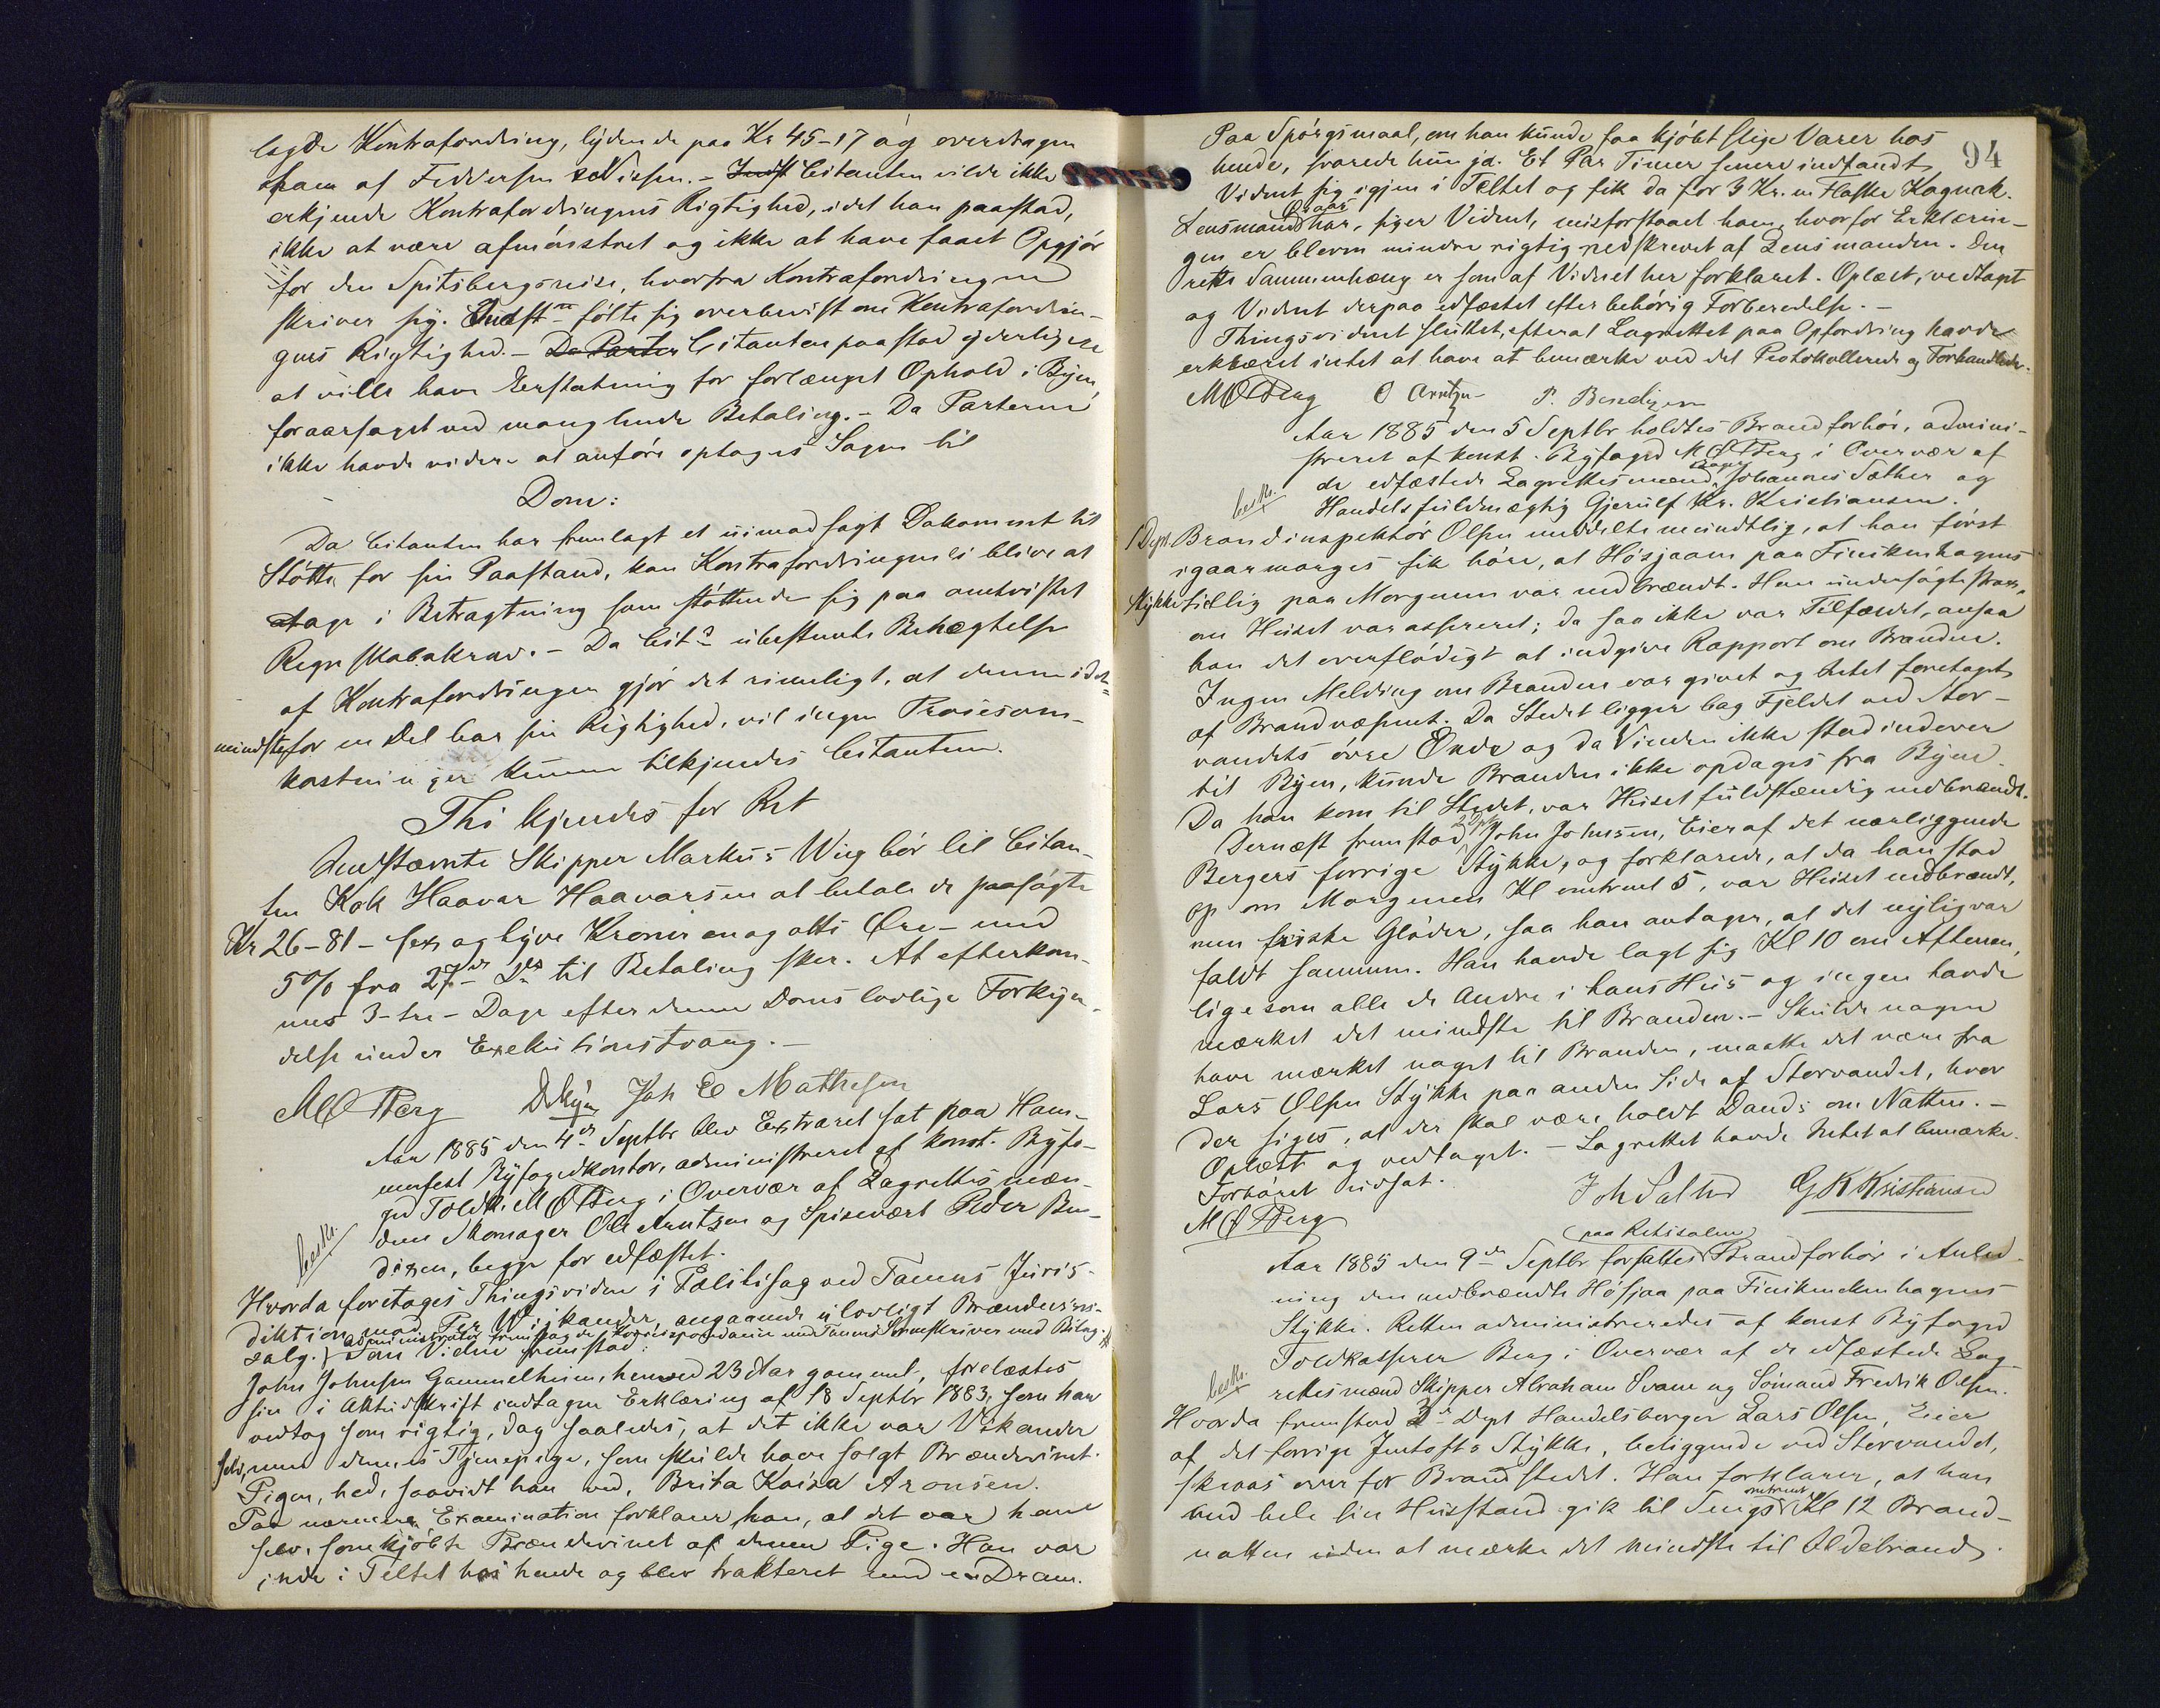 lagde Kontrafordring, lydende paa Kr 45-17 og overdragen
ham af Feddersen & Nissen. - Indst Citanten vilde ikke
erkjende Kontrafordringens Rigtighed, idet han paastod,
ikke at være afmønstret og ikke at have faaet Opgjør
for den Spitsbergsreise, hvorfra Kontrafordringen
skriver sig. Indstte følte sig overbevist om Kontrafordrin-
gens Rigtighed. - De Parter Citanten paastod yderligere
at ville have Erstatning for forlænget Ophold i Byen,
foraarsaget ved manglende Betaling. - Da Parterne
ikke havde videre at anføre optoges Sagen til
Dom:
Da Citanten har fremlagt et uimodsagt Dokument til
Støtte for sin Paastand, kan Kontrafordringen ei blive at
tage i Betragtning som støttende sig paa omtvistet
Regnskabskrav. - Da Cits ubestemte Benægtelse
af Kontrafordringen gjør det rimeligt, at denne idet-
mindste for en Del har sin Rigtighed, vil ingen Procesom-
kostninger kunne tilkjendes Citanten.
Thi kjendes for Ret
Indstævnte Skipper Markus Wiig bør til Citan-
ten Kok Haavar Haavarsen at betale de paasøgte
Kr 26-81 - sex og tyve Kroner en og otti Øre - med
5% fra 27de Ds til Betaling sker. At efterkom-
mes 3-tre-Dage efter denne Doms lovlige Forkyn-
delse under Exekutionstvang. -
MØBerg Joh E Mathesen
Aar 1885 den 4de Septbr blev Extraret sat paa Ham-
merfest Byfogedkontor, administreret af konst. Byfo-
ged Toldk. MØBerg i Overvær af Lagrettesmæn-
dene Skomager Ole Arntzen og Spisevært Peder Ben-
dixen, begge for edfæstet.
besk.
Hvorda foretoges Thingsvidne i Politisag ved Tanens Juris-
diktion mod Per Wikander, angaaende ulovligt Brændevins-
salg. Administrator fremlagde Korrespondance med Tanens Sorenskriver med Bilag.
Som Vidne fremstod:
John Johnsen Gammelheim, henved 23 Aar gammel, forelæstes
sin i Aktudskrift indtagne Erklæring af 18 Septbr 1883, som han
vedtog som rigtig, dog saaledes, at det ikke var Vikander
selv, men dennes Tjenepige, som skulde have solgt Brændevinet.
Pigen, hed, saavidt han ved, Brita Kaisa Aronsen.
Paa nærmere Examination forklarer han, at det var ham
selv, som kjøbte Brændevinet af denne Pige. Han var
inde i Teltet hos hende og blev trakteret med en Dram.
94
Paa Spørgsmaal, om han kunde faa kjøbt slige Varer hos
hende, svarede hun ja. Et Par Timer senere indfandt
Vidnet sig igjen i Teltet og fik da for 3 Kr. en Flaske Kognak.
Lensmand har, siger Vidnet, misforstaaet ham, hvorfor Erklærin-
gen er bleven mindre rigtig nedskrevet af Lensmanden. Den
rette Sammenhæng er som af Vidnet her forklaret. Oplæst, vedtaget
og Vidnet derpaa edfæstet efter behørig Forberedelse. -
Thingsvidnet sluttet, efterat Lagrettet paa Opfordring havde
erklæret intet at have at bemærke ved det Protokollerede og Forhandlede.
MØBerg O Arntzen P. Bendixen
Aar 1885 den 5 Septbr holdtes Brandforhør, admini-
streret af konst. Byfoged MØBerg i Overvær af
de edfæstede Lagrettesmænd Johannes Sæther og
Handelsfuldmægtig Gjerulf Kr. Kristiansen.
besk.
1 Dept. Brandinspektør Olsen meddelte mundtlig, at han først
igaarmorges fik høre, at Høsjaaen paa Finikenhagens
Stykke tidlig paa Morgenen var nedbrændt. Han undersøgte strax,
om Huset var assureret; da saa ikke var Tilfældet, ansaa
han det overflødigt at indgive Rapport om Branden.
Ingen Melding om Branden var givet og Intet foretaget
af Brandvæsenet. Da Stedet ligger bag Fjeldet ved Stor-
vandets øvre Ende og da Vinden ikke stod indover
til Byen, kunde Branden ikke opdages fra Byen.
Da han kom til Stedet, var Huset fuldstændig nedbrændt.
Dernæst fremstod 2 Dept John Johnsen, Eier af det nærliggende
Bergers forrige Stykke, og forklarede, at da han stod
op om Morgenen Kl omtrent 5, var Huset nedbrændt,
men friske Gløder, saa han antager, at det nylig var
faldt sammen. Han havde lagt sig Kl 10 om Aftenen,
ligesom alle de Andre i hans Hus og ingen havde
mærket det mindste til Branden. - Skulde nogen
have mærket noget til Branden, maatte det være fra
Lars Olsens Stykke paa anden Side af Storvandet, hvor
der siges, at der skal være holdt Dands om Natten. -
Oplæst og vedtaget. - Lagrettet havde Intet at bemærke.
Forhøret udsat.
MØBerg Joh Sæther GKKristiansen
Aar 1885 den 9de Septbr fortsattes (paa Retssalen) Brandforhør i Anled-
ning den nedbrændte Høsjaa paa Finikenhagens
Stykke. Retten administreredes af konst Byfoged
Toldkasserer Berg i Overvær af de edfæstede Lag-
rettesmænd Skipper Abraham Svane og Sømand Fredrik Olsen.
besk.
Hvorda fremstod 3de Dept Handelsborger Lars Olsen, Eier
af det forrige Jentofts Stykke, beliggende ved Storvandet,
skraas over for Brandstedet. Han forklarer, at han
med hele sin Husstand gik til Sengs omtrent Kl 12 Brand-
natten uden at mærke det mindste til Ildebrand.